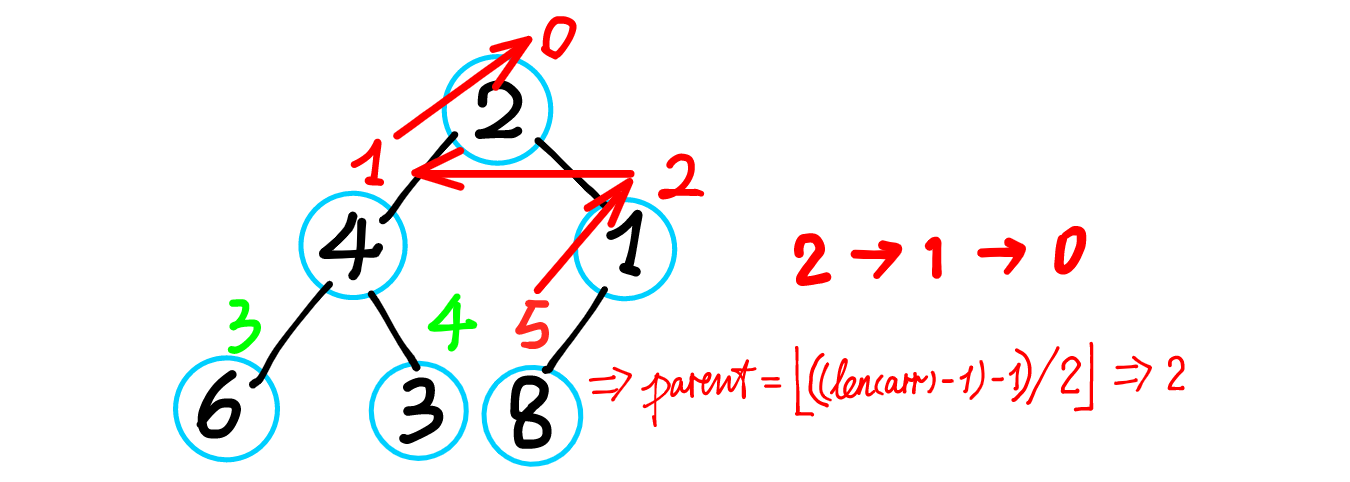 0
2
1
2
4
1
2 → 1 → 0
3
4
5
6
3
8
⇒ parent = ⌊((len(arr) - 1) - 1) / 2⌋ ⇒ 2